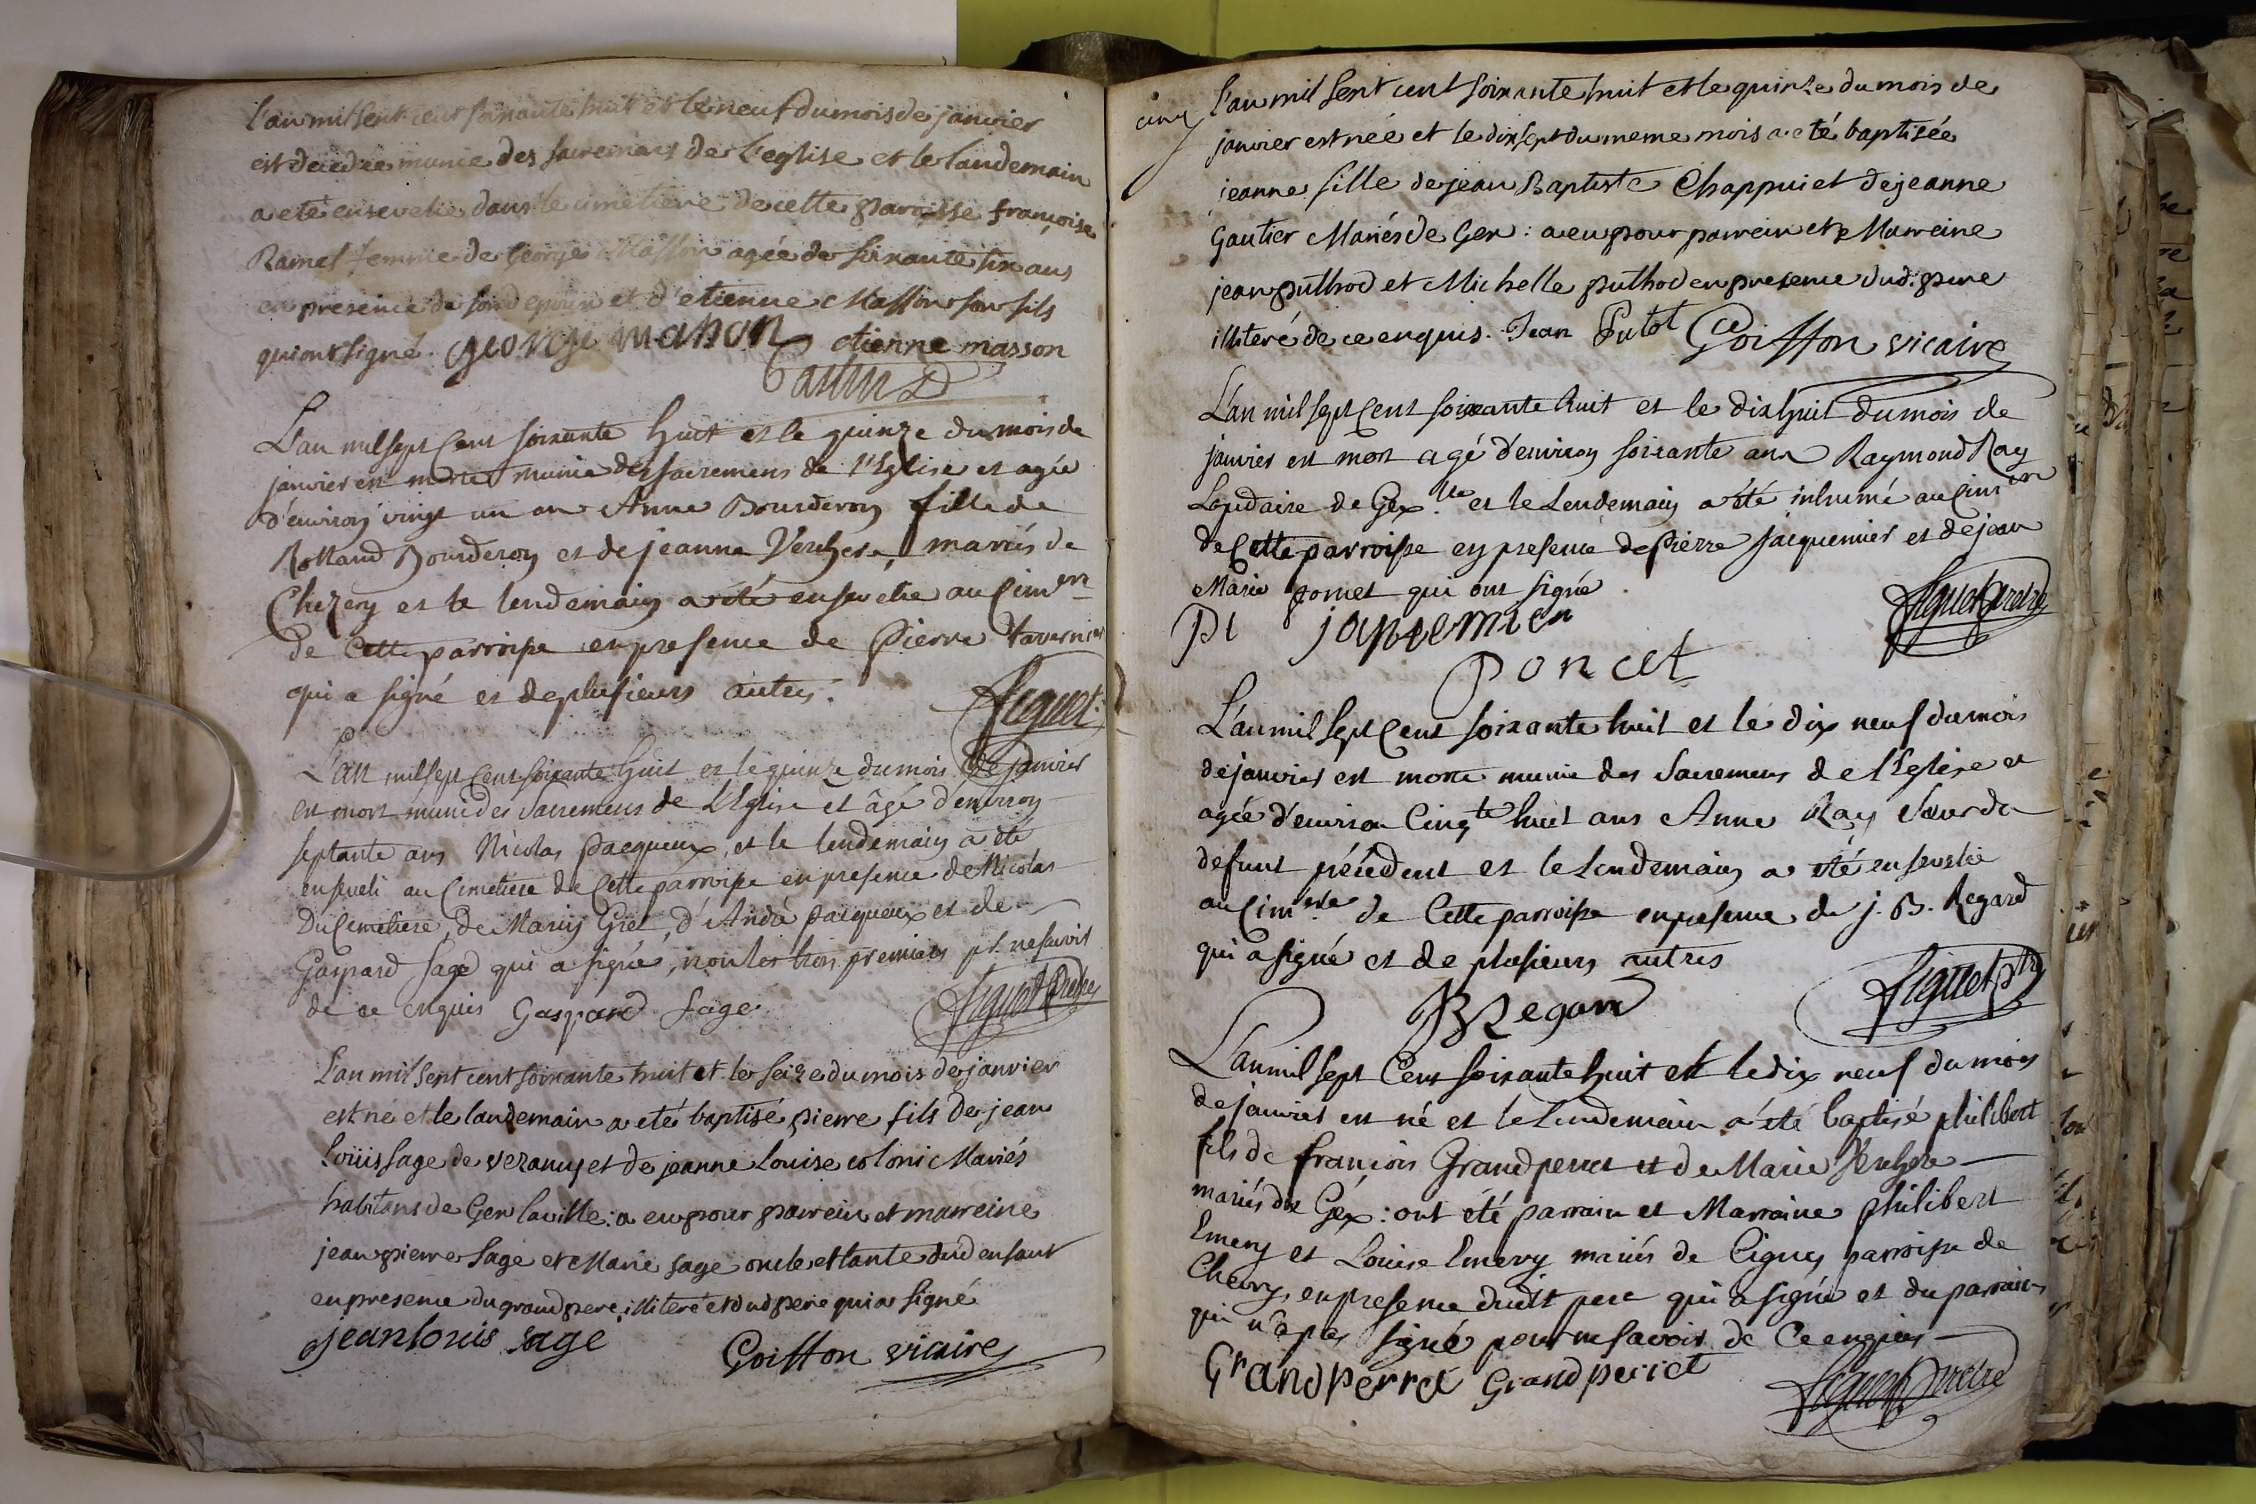 l'an mil sept cent soixante huit et le neuf du mois de janvier
est decedée munie des sacremens de l'eglise et le landemain
a eté ensevelie dans le cimetiere de cette paroisse françoise
Ramel femme de George Masson agée de soixante six ans
en presence de son d epoux et d'etienne Masson son fils
qui ont signé. george mason etienne masson
L'an mil sept Cent soixante huit et le quinze du mois de
janvier est morte munie des sacremens de l'Eglise et agée
d'environ vingt un an Anne Bourderon fille de
Rolland Bourderon et de jeanne Verchere, mariés de
Chezery et le lendemain a été ensevelie au Cim.re
de Cette parroisse en presence de Pierre tavernier
qui a signé et de plusieurs autres.
Figuet.
L'an mil sept Cent soixante huit et le quinze du mois de janvier
est mort muni des Sacremens de L'Eglise et âgé d'environ
septante ans Nicolas pacqueux, et le lendemain a été
enseveli au Cimetiere de Cette parroisse en presence de Nicolas
Ducimetiere, de Marin Gret, d'André pacqueux et de
Gaspard Sage qui a signé, non les trois premiers pr. ne savoir
de ce enquis Gaspard Sage
Figuet Pretre
L'an mil sept cent soixante huit et le seize du mois de janvier
est né et le landemain a eté baptisé pierre fils de jean
Loüis sage de vezancy et de jeanne Louise coloni Mariés
habitans de Gex la ville: a eu pour parrein et marreine
jean pierre sage et Marie sage oncle et tante dud enfant
en presence du grand pere illiteré et dud pere qui a signé
jean louis sage Goiffon vicaire
cinq
l'an mil sept cent soixante huit et le quinze du mois de
janvier est née et le dix sept du meme mois a eté baptisée
jeanne fille de jean Baptiste Chappuiet de jeanne
Gautier Mariés de Gex: a eu pour parrein et Marreine
jean puthod et Michelle puthod en presence dud. pere
illiteré de ce enquis. Jean Putot Goiffon vicaire
L'an mil sept Cent soixante huit et le dix huit du mois de
janvier est mort agé d'environ soixante ans Raymond Ray
Lapidaire de Gex lle et le Lendemain a été inhumé au Cim.re
de Cette parroisse en presence de Pierre jacquemier et de jean
Marie poncet qui ont signé.
Figuet Pretre
pi jaquemier
Poncet
L'an mil sept Cent soixante huit et le dix neuf du mois
de janvier est morte munie des Sacremens de l'Eglise et
agée d'environ Cinq.te huit ans Anne Ray Soeur du
defunt précédent et le Lendemain a été ensevelie
au Cim.re de Cette parroisse en presence de j. B. Regard
qui a signé et de plusieurs autres
JB Regard Figuet ptre
L'an mil sept Cent soixante huit et le dix neuf du mois
de janvier est né et le Lendemain a été baptisé philibert
fils de françois Grandperret et de Marie Verchere
mariés de Gex: ont été parrain et Marraine philibert
Emery et Louise Emery mariés de Signy parroisse de
Chevry, en presence dudit pere qui a signé et du parrain
qui n'a pas signé pour ne savoir de Ce enquis
Grandperret Grandperret Figuet Pretre